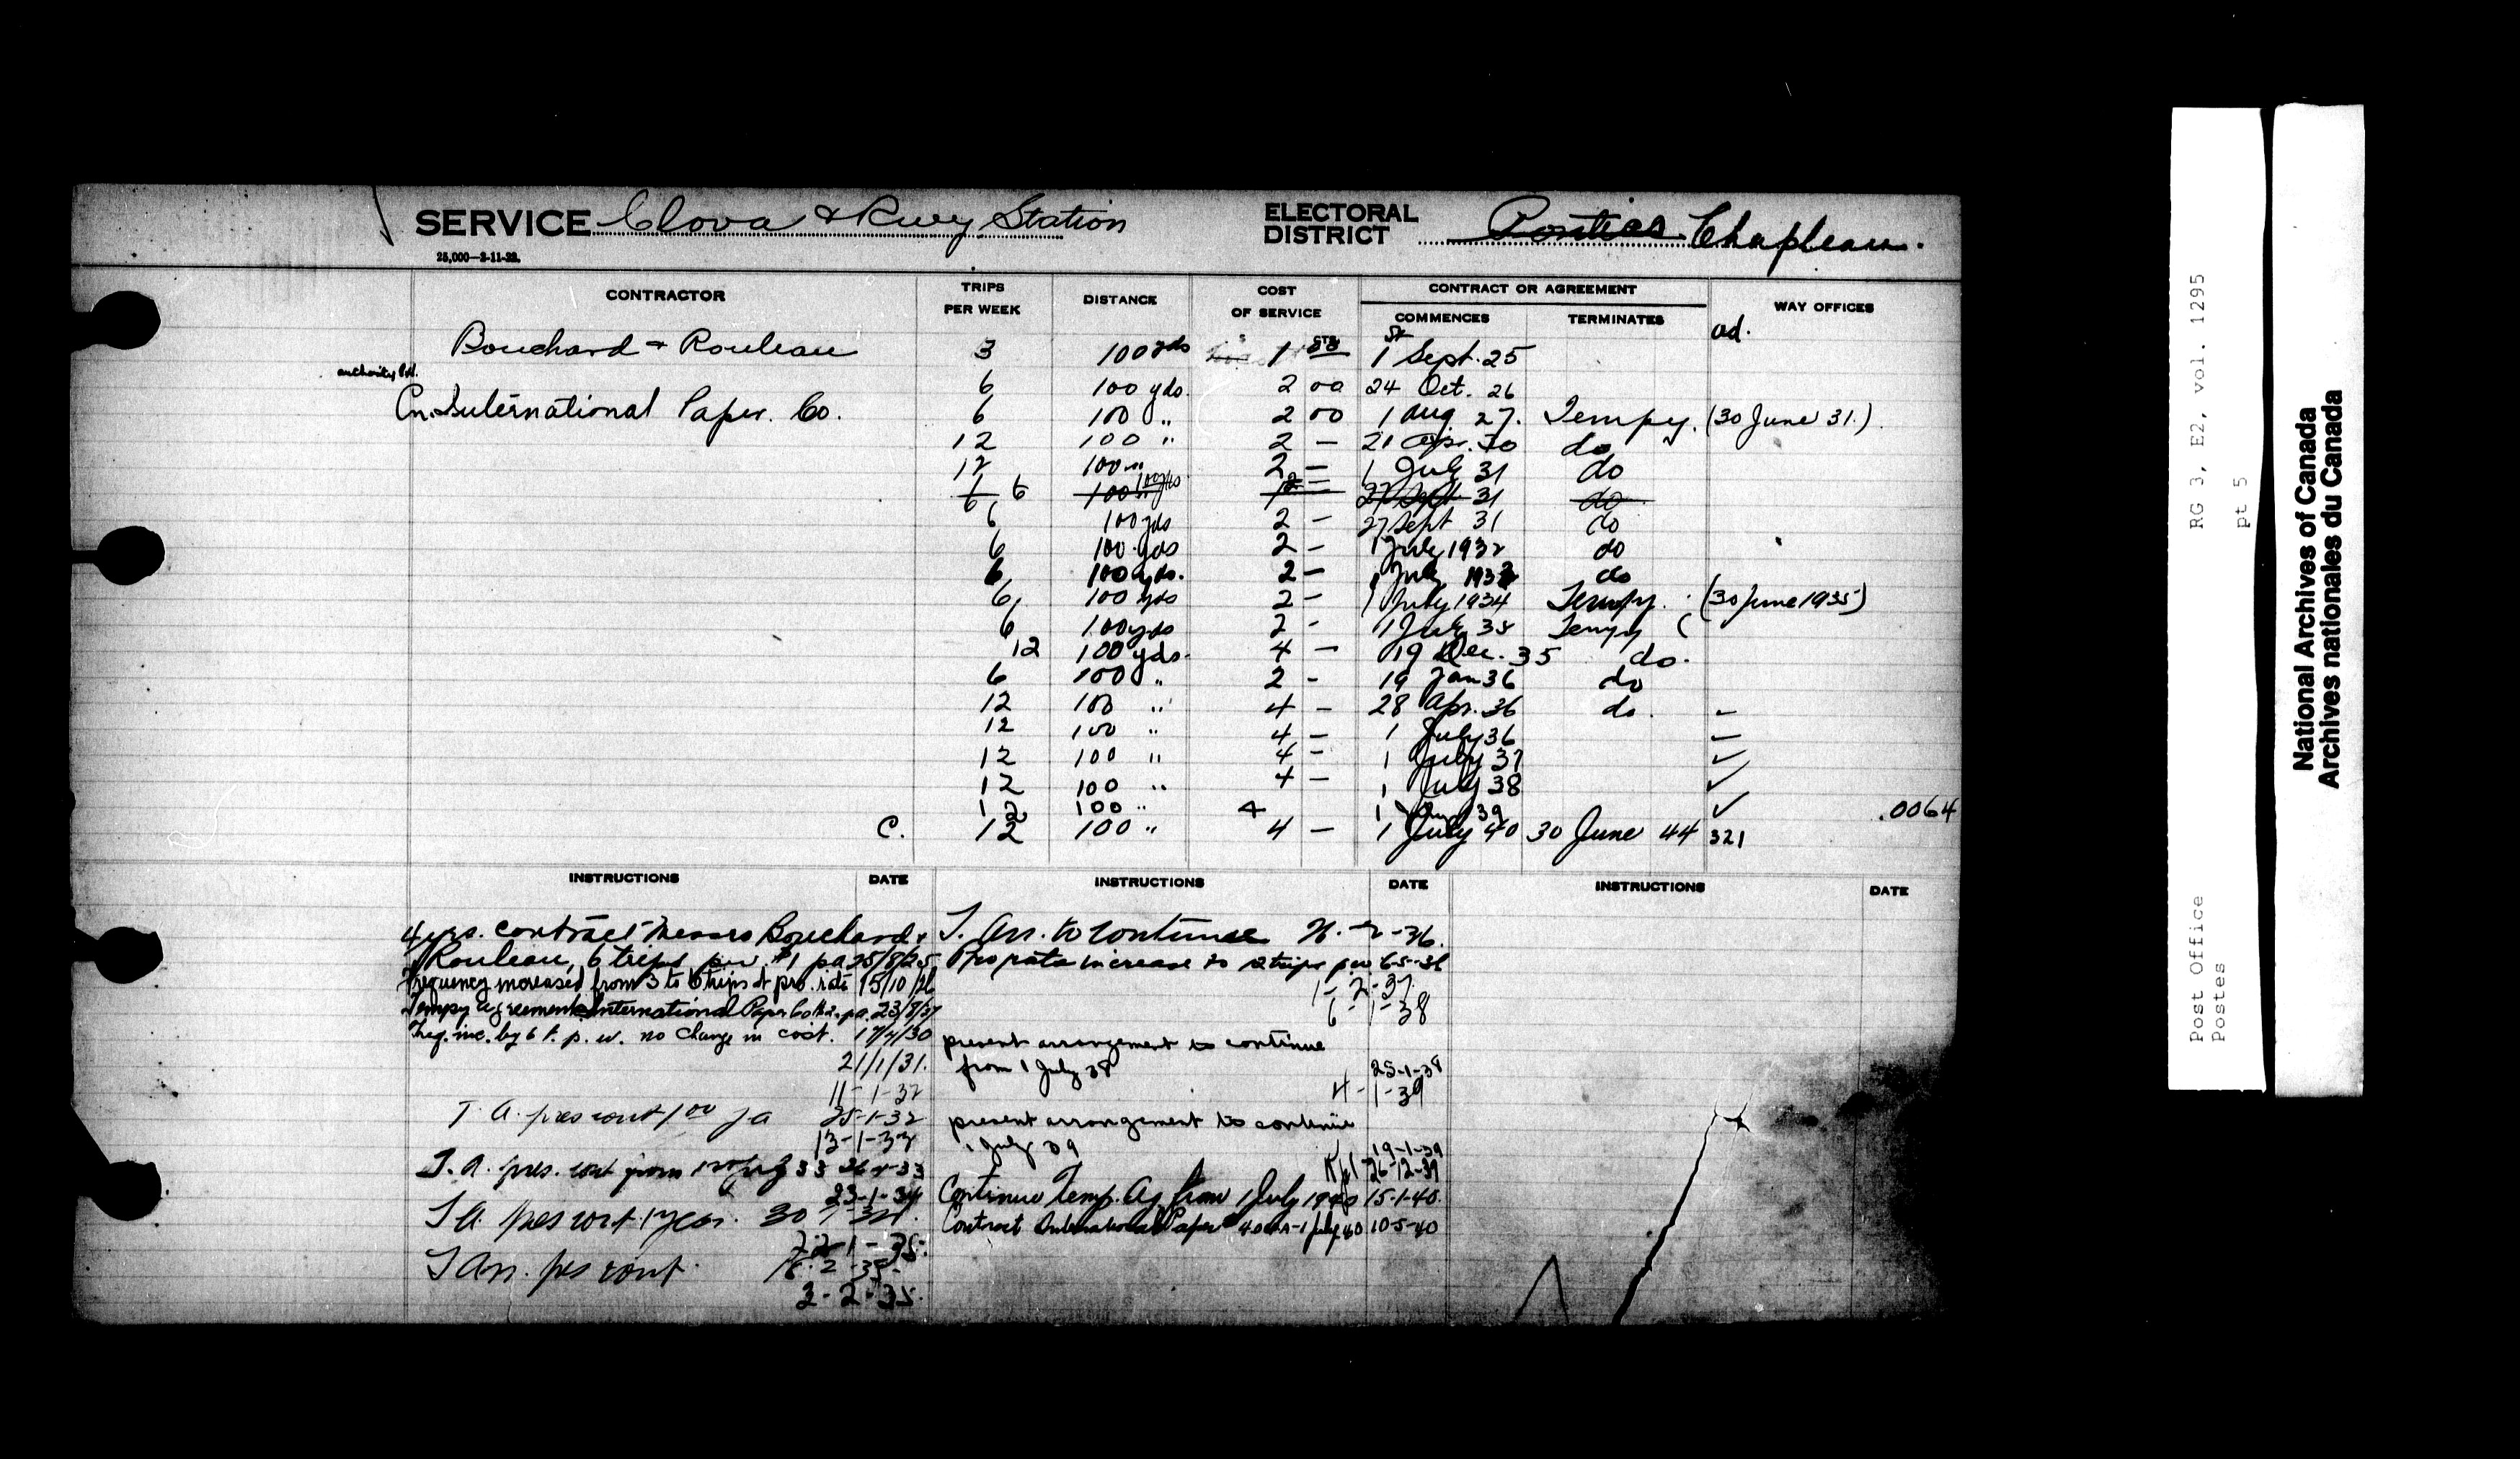 SERVICE Clova & Rwy. Station ELECTORAL DISTRICT Pontiac Chapleau.
25,000—2-11-22.
CONTRACTOR TRIPS PER WEEK DISTANCE COST OF SERVICE CONTRACT OR AGREEMENT COMMENCES TERMINATES WAY OFFICES
ad.
Bouchard & Rouleau 3 100 yds 1 00 1st Sept. 25
6 100 yds. 2 00 24 Oct. 26
Cn. International Paper. Co. 6 100 " 2 00 1 Aug 27. Tempy. (30 June 31.)
12 100 " 2 — 21 Apr. 30 do
12 100 " 2 — 1 July 31 do
6 100 yds 27 Sept 31 do
6 100 yds 2 — 27 Sept 31 do
6 100 yds 2 — 1 July 1932 do
6 100 yds. 2 — 1 July 1933 do
6 100 yds 2 — 1 July 1934 Tempy. (30 June 1935)
6 100 yds 2 - 1 July 35 Tempy (
12 100 yds. 4 — 19 Dec. 35 do.
6 100 " 2 - 19 Jan 36 do
12 100 " 4 — 28 Apr. 36 do.
12 100 " 4 — 1 July 36
12 100 " 4 - 1 July 37 ✓
12 100 " 4 — 1 July 38 ✓
12 100 " 4 1 39 ✓ .0064
C. 12 100 " 4 — 1 July 40 30 June 44 321
INSTRUCTIONS DATE INSTRUCTIONS DATE INSTRUCTIONS DATE
4 yrs. contract Messrs Bouchard &
Rouleau, 6 trips pw. $1 pa 25/8/25
Frequency increased from 3 to 6 trips at pro. rate 15/10/26
Tempy agreement International Paper Co $2. pa. 23/8/27
Freq. inc. by 6 t. p. w. no change in cost. 17/4/30
21/1/31.
11-1-32
T. A. pres cont 1 00 pa 25-1-32
13-1-33
T. A. pres. cont from
23-1-34
T A. pres cont. 1 year.
22-1-35.
T Arr. pres cont.
2-2-35.
T. Arr. to continue
Pro rata increase to 12 trips pw 6-5-36
1-2-37.
6-1-38
present arrangement to continue
from 1 July 38 25-1-38
4-1-39
present arrangement to continue
1 July 39 19-1-39
26-12-39
Continue Temp. Ag. from 1 July 1940 15-1-40.
Contract International Paper 1 July 40 10-5-40
RG 3, E2, vol. 1295
pt 5
Post Office
Postes
National Archives of Canada
Archives nationales du Canada